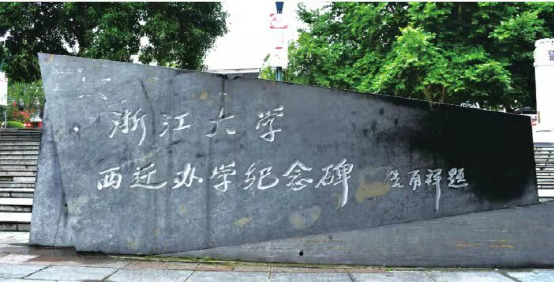 浙江大学
西迁办学纪念碑 路甬祥题